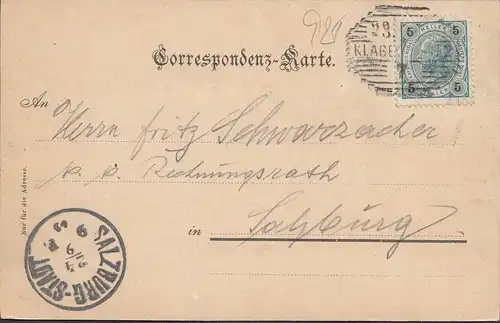 Correspondenz-Karte.
5 HELLER 5
KLAGE
5 5
An
Herrn Fritz Schwarzacher
k. k. Rechnungsrath
in Salzburg
Nur für die Adresse.
SALZBURG-STADT